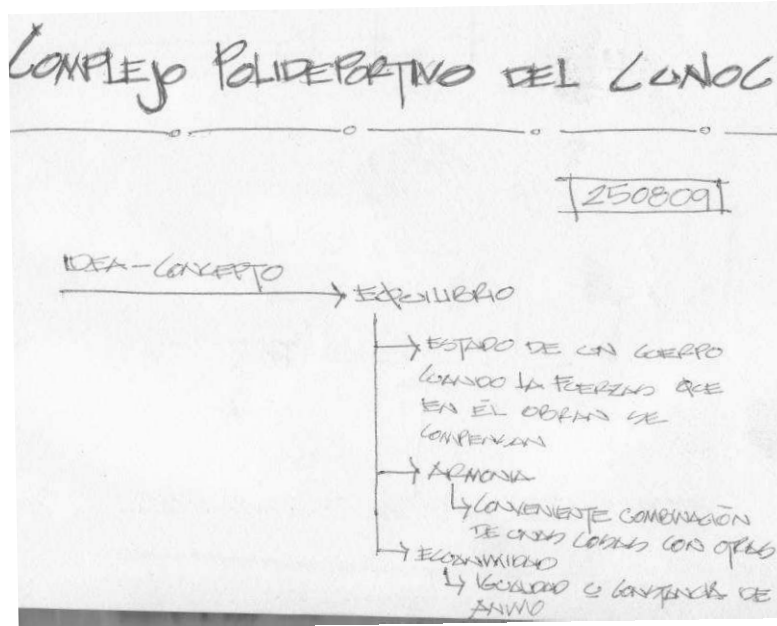 COMPLEJO POLIDEPORTIVO DEL CUNOC
250809
IDEA-CONCEPTO
EQUILIBRIO
ESTADO DE UN CUERPO
CUANDO LA FUERZAS QUE
EN ÉL OBRAN SE
COMPENSAN
ARMONIA
CONVENIENTE COMBINACIÓN
DE UNAS COSAS CON OTRAS
ECUANIMIDAD
IGUALDAD U CONSTANCIA DE
ANIMO